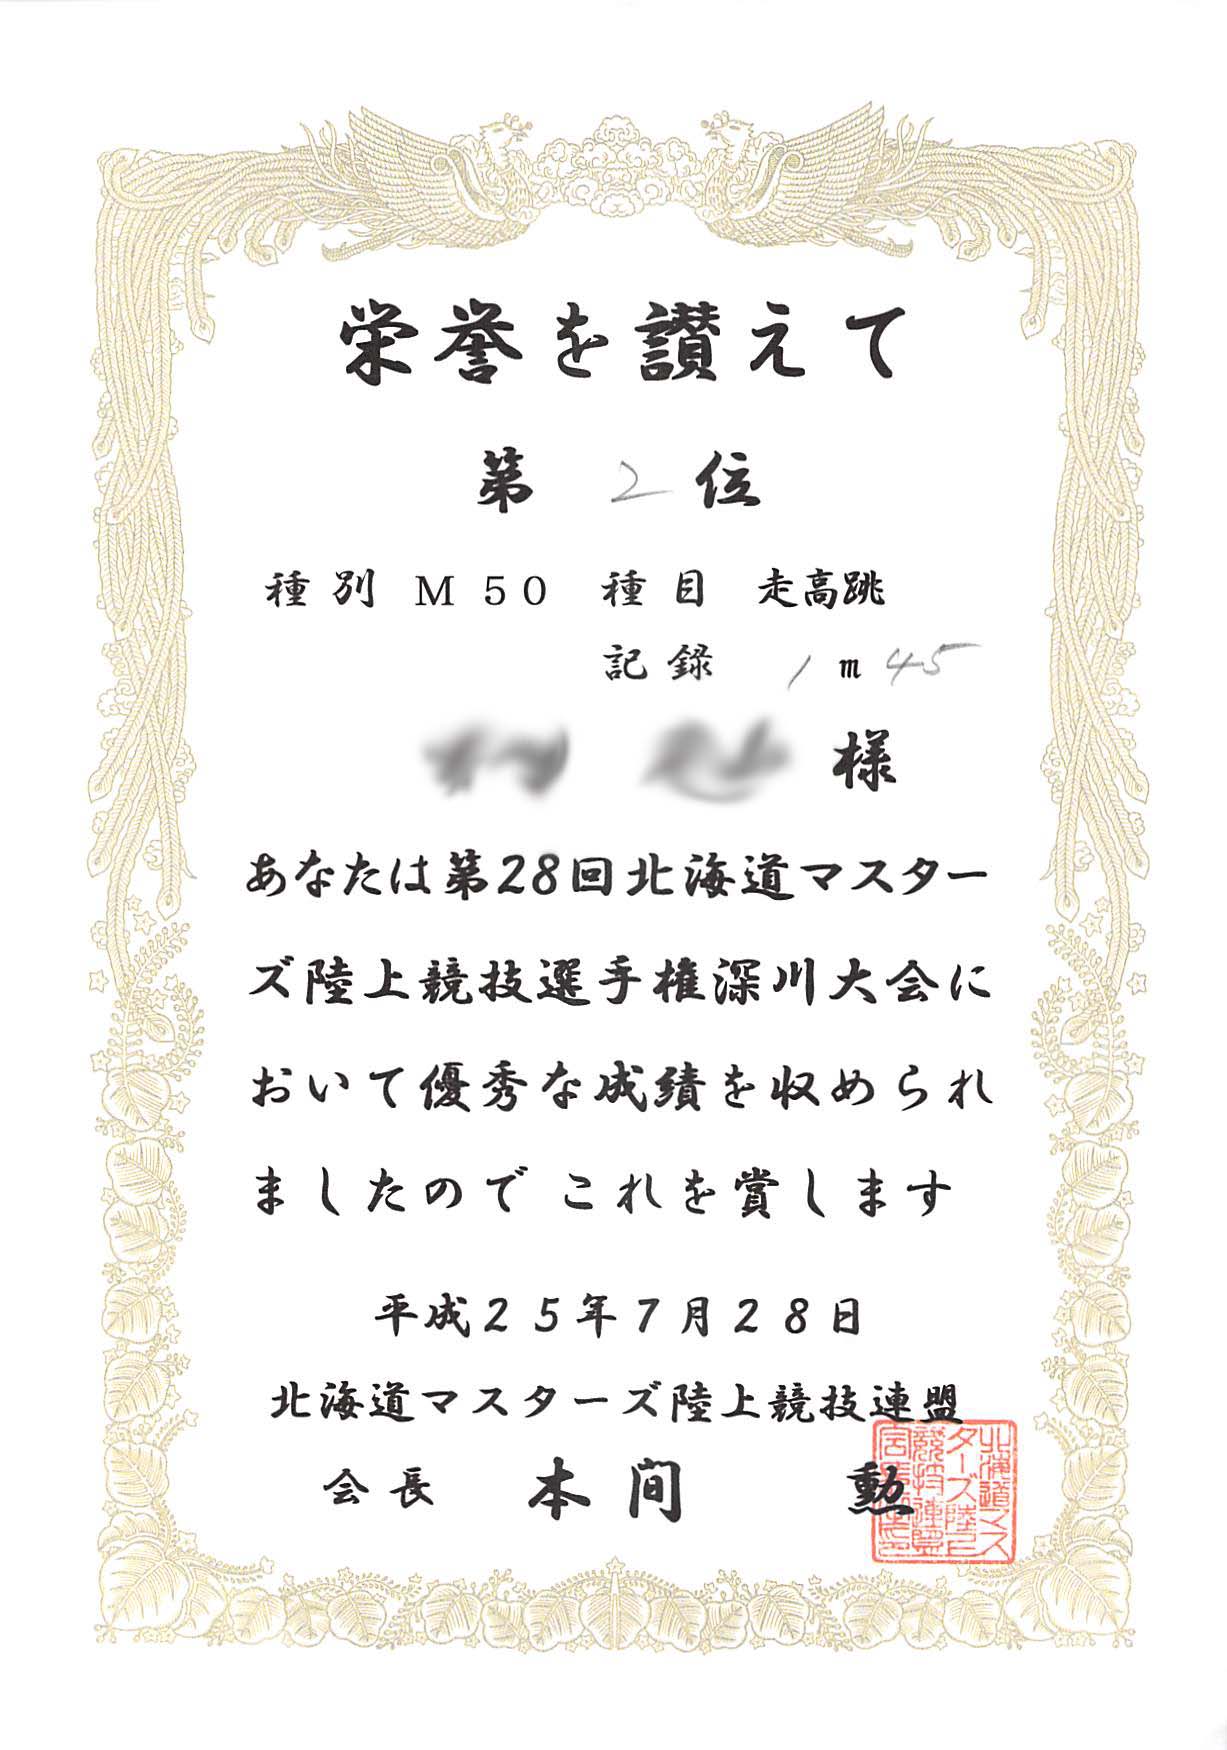 栄誉を讃えて
第 2 位
種別 M50 種目 走高跳
記録 1m45
様
あなたは第28回北海道マスター
ズ陸上競技選手権深川大会に
おいて優秀な成績を収められ
ましたので これを賞します
平成25年7月28日
北海道マスターズ陸上競技連盟
会長 本間 勲